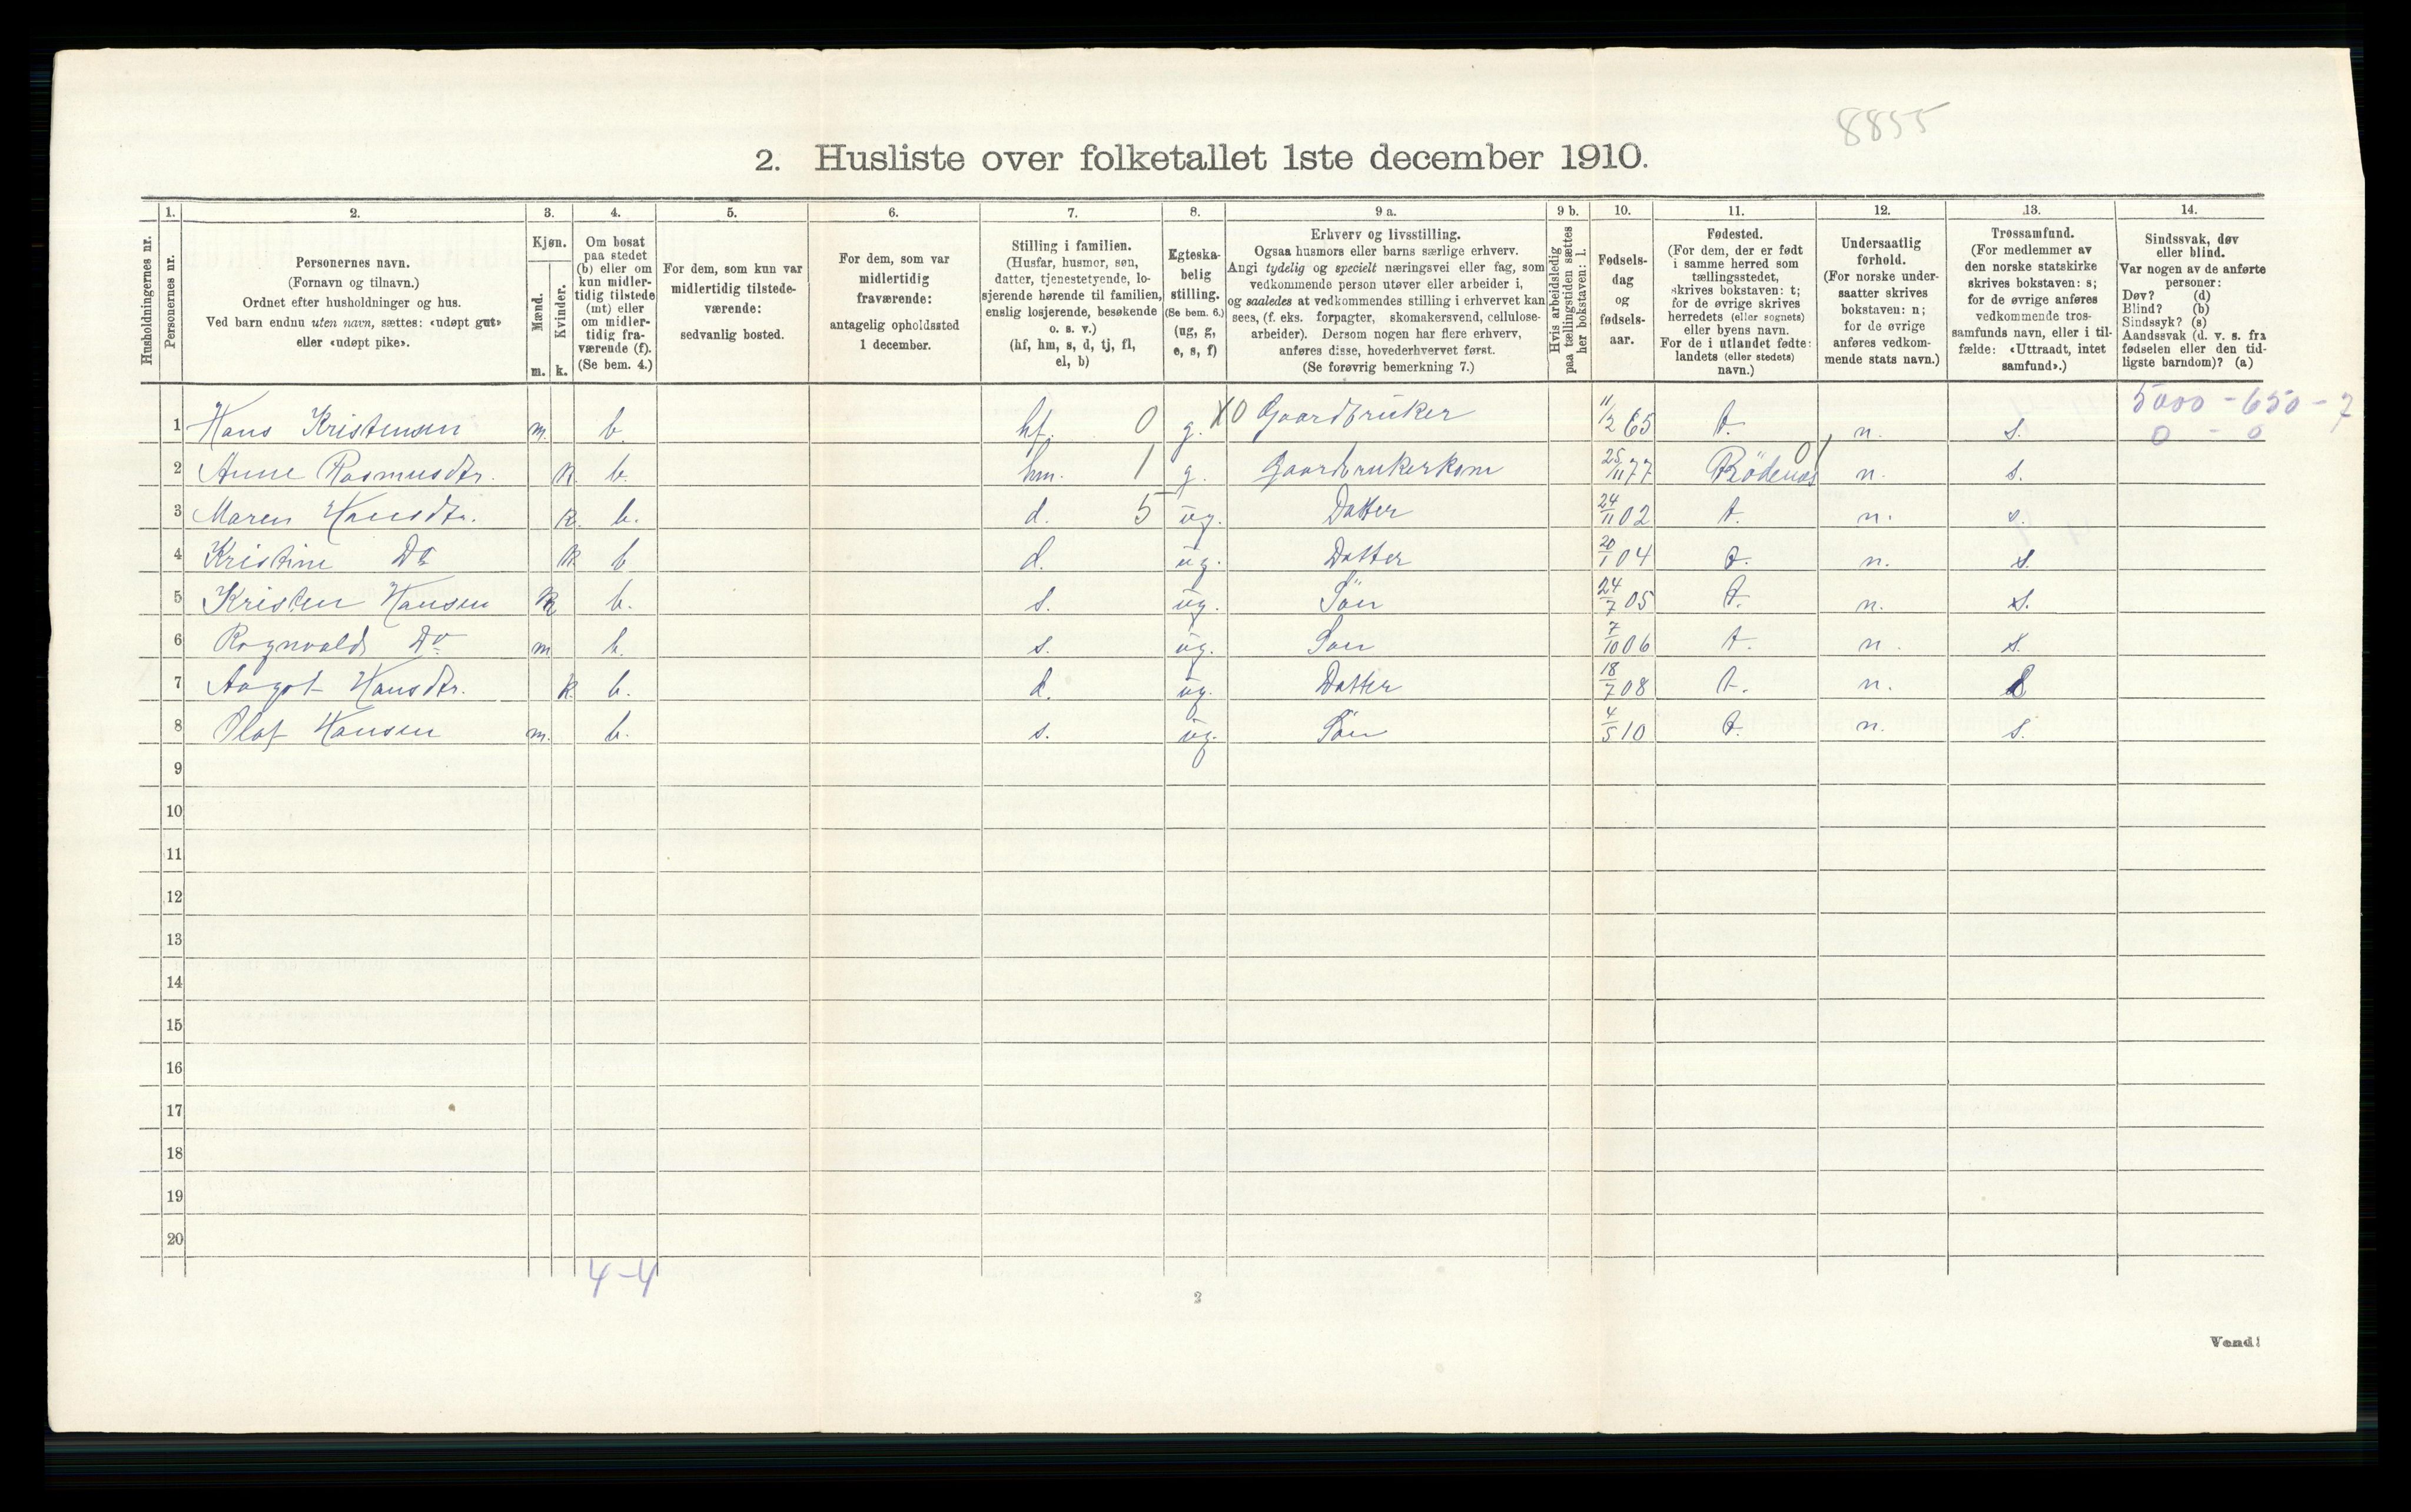 8855
2. Husliste over folketallet 1ste december 1910.
Husholdningernes nr.
1.
Personernes nr.
2.
Personernes navn.
(Fornavn og tilnavn.)
Ordnet efter husholdninger og hus.
Ved barn endnu uten navn, sættes: «udøpt gut»
eller «udøpt pike».
3.
Kjøn.
Mænd.
Kvinder.
m.
k.
4.
Om bosat
paa stedet
(b) eller om
kun midler-
tidig tilstede
(mt) eller
om midler-
tidig fra-
værende (f).
(Se bem. 4.)
5.
For dem, som kun var
midlertidig tilstede-
værende:
sedvanlig bosted.
6.
For dem, som var
midlertidig
fraværende:
antagelig opholdssted
1 december.
7.
Stilling i familien.
(Husfar, husmor, søn,
datter, tjenestetyende, lo-
sjerende hørende til familien,
enslig losjerende, besøkende
o. s. v.)
(hf, hm, s, d, tj, fl,
el, b)
8.
Egteska-
belig
stilling.
(Se bem. 6.)
(ug, g,
e, s, f)
9 a.
Erhverv og livsstilling.
Ogsaa husmors eller barns særlige erhverv.
Angi tydelig og specielt næringsvei eller fag, som
vedkommende person utøver eller arbeider i,
og saaledes at vedkommendes stilling i erhvervet kan
sees, (f. eks. forpagter, skomakersvend, cellulose-
arbeider). Dersom nogen har flere erhverv,
anføres disse, hovederhvervet først.
(Se forøvrig bemerkning 7.)
9 b.
Hvis arbeidsledig
paa tællingstiden sættes
her bokstaven: l.
10.
Fødsels-
dag
og
fødsels-
aar.
11.
Fødested.
(For dem, der er født
i samme herred som
tællingsstedet,
skrives bokstaven: t;
for de øvrige skrives
herredets (eller sognets)
eller byens navn.
For de i utlandet fødte:
landets (eller stedets)
navn.)
12.
Undersaatlig
forhold.
(For norske under-
saatter skrives
bokstaven: n;
for de øvrige
anføres vedkom-
mende stats navn.)
13.
Trossamfund.
(For medlemmer av
den norske statskirke
skrives bokstaven: s;
for de øvrige anføres
vedkommende tros-
samfunds navn, eller i til-
fælde: «Uttraadt, intet
samfund».)
14.
Sindssvak, døv
eller blind.
Var nogen av de anførte
personer:
Døv? (d)
Blind? (b)
Sindssyk? (s)
Aandssvak (d. v. s. fra
fødselen eller den tid-
ligste barndom)? (a)
5000 - 650 - 7
0 - 0
1 Hans Kristensen m. b. hf. 0 g. X0 Gaardbruker 11/2 65 t. n. s.
2 Anne Rasmusdtr. k. b. hm. 1 g. Gaardbrukerkone 25/11 77 Rödenæs 01 n. s.
3 Maren Hansdtr. k. b. d. 5 ug. Datter 24/11 02 t. n. s.
4 Kristine Do k b d. ug. Datter 20/1 04 t. n. s.
5 Kristen Hansen b. s. ug. Sön 24/7 05 t. n. s.
6 Rognvald Do m b. s. ug. Sön 7/10 06 t. n. s.
7 Aagot Hansdtr. k. b. d. ug. Datter 18/7 08 t. n. s
8 Olaf Hansen m. b. s. ug. Sön 4/5 10 t. n. s.
9
10
11
12
13
14
15
16
17
18
19
20
4-4
2
Vend!